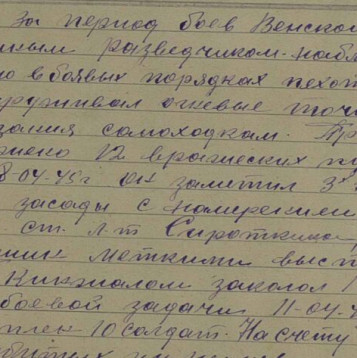 за период боев Венской
ным разведчиком-набл
о в боевых порядках пехот
аруживал огневые точ
зания самоходкам. Пр
жено 12 вражеских по
8-04-45г он заметил 3х
засады с намерением
ст. л-т Сироткина,
ник меткими выст
Кинжалом заколол 1
боевой задачи 11-04-4
плен 10 солдат. На счету